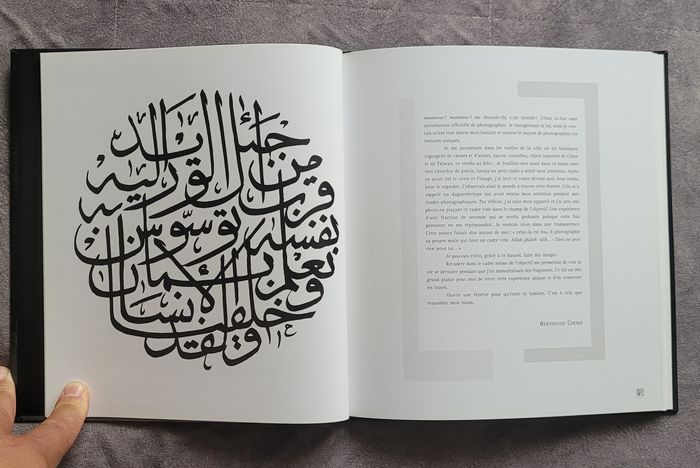 ولقد خلقنا الإنسان
ونعلم ما توسوس به
نفسه ونحن أقرب
إليه من حبل الوريد
mammour! mammour! me disaient-ils, c'est interdit! J'étais là-bas sans
autorisation officielle de photographier. Je transgressais la loi, mais je vou-
lais avant tout suivre mon instinct et trouver le moyen de photographier ces
instants uniques.
Je me promenais dans les ruelles de la ville où les boutiques
regorgent de choses et d'autres, épices, vaisselles, objets importés de Chine
et de Taïwan, ce vendu au kilo... Je fouillais moi aussi dans ce bazar sans
rien chercher de précis, lorsqu'un petit cadre a attiré mon attention. Après
en avoir ôté le verre et l'image, j'ai levé ce cadre devant moi, bras tendu,
pour le regarder. J'observais ainsi le monde à travers cette fenêtre. Cela m'a
rappelé un daguerréotype qui avait retenu mon attention pendant mes
études photographiques. Par réflexe, j'ai saisi mon appareil et j'ai pris une
photo en plaçant ce cadre vide dans le champ de l'objectif. Une expérience
d'une fraction de seconde qui se révéla probante puisque cette fois
personne ne me réprimandait. Je mettais ainsi en avant le subterfuge.
Cette astuce faisait dire autour de moi: « celui-là est fou, il photographie
sa propre main qui tient un cadre vide. Allah ghaleb 'alik... – Dieu ne peut
rien pour lui – »
Je pouvais enfin, grâce à ce hasard, faire des images.
Recadrer dans le cadre même de l'objectif me permettait de voir la
vie se dérouler pendant que j'en immortalisais des fragments. Ce fut un très
grand plaisir pour moi de vivre cette expérience unique et d'en conserver
les traces.
Ouvrir une fenêtre pour qu'entre la lumière. C'est à cela que
ressemble mon Islam.
BENYOUCEF CHERIF